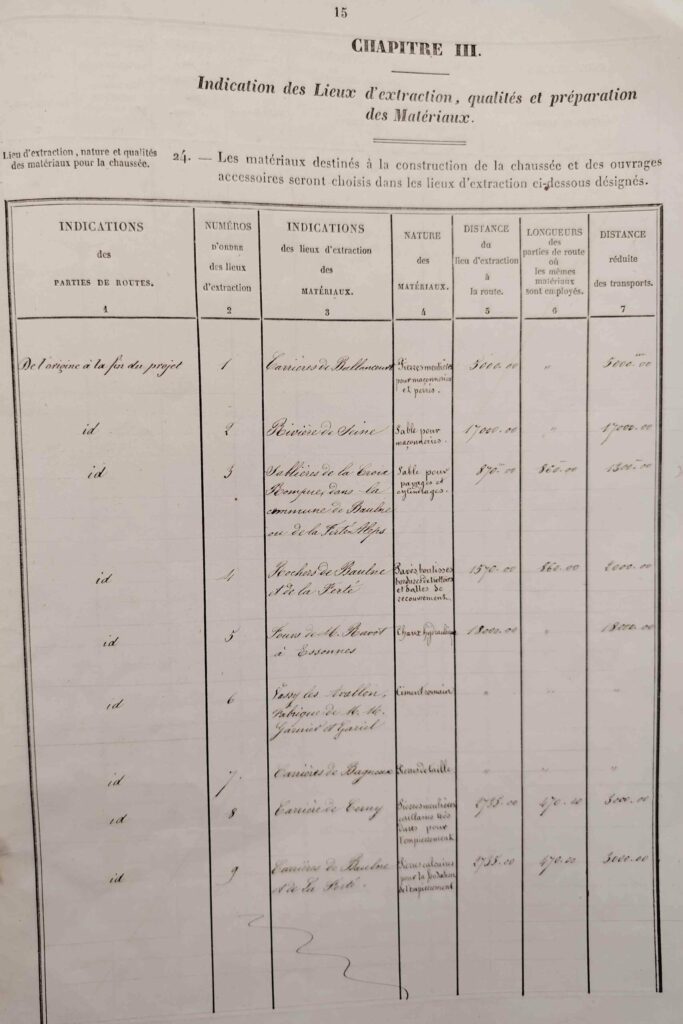 15
CHAPITRE III.
Indication des Lieux d'extraction, qualités et préparation
des Matériaux.
Lieu d'extraction, nature et qualités
des matériaux pour la chaussée.
24. — Les matériaux destinés à la construction de la chaussée et des ouvrages
accessoires seront choisis dans les lieux d'extraction ci-dessous désignés.
INDICATIONS
des
PARTIES DE ROUTES.
1
NUMÉROS
D'ORDRE
des lieux
d'extraction
2
INDICATIONS
des lieux d'extraction
des
MATÉRIAUX.
3
NATURE
des
MATÉRIAUX.
4
DISTANCE
du
lieu d'extraction
à
la route.
5
LONGUEURS
des
parties de route
où
les mêmes
matériaux
sont employés.
6
DISTANCE
réduite
des transports.
7
De l'origine à la fin du projet 1 Carrières de Ballancourt Pierres meulières 5000.00 " 5000.00
pour maçonneries
et perrés.
id 2 Rivière de Seine Sable pour 17000.00 " 17000.00
maçonneries.
id 3 Sablières de la Croix Sable pour 870.00 860.00 1300.00
Rompue, dans la pavages et
commune de Baulne cylindrages.
ou de la Ferté Aleps
id 4 Rochers de Baulne Pavés boutisses 1570.00 860.00 2000.00
et de la Ferté bordures de trottoirs
et dalles de
recouvrement.
id 5 Fours de M. Ravot Chaux hydraulique 18000.00 " 18000.00
à Essonnes
id 6 Vassy les Avallon, Ciment romain " " "
Fabrique de M. M.
Garnier et Gariel
id 7 Carrières de Bagneux Pierres de taille " " "
id 8 Carrière de Cerny Pierres meulières 2755.00 470.00 3000.00
caillasses très
dures pour
l'empierrement
id 9 Carrières de Baulne Pierres calcaires 2755.00 470.00 3000.00
et de La Ferté. pour la fondation
de l'empierrement